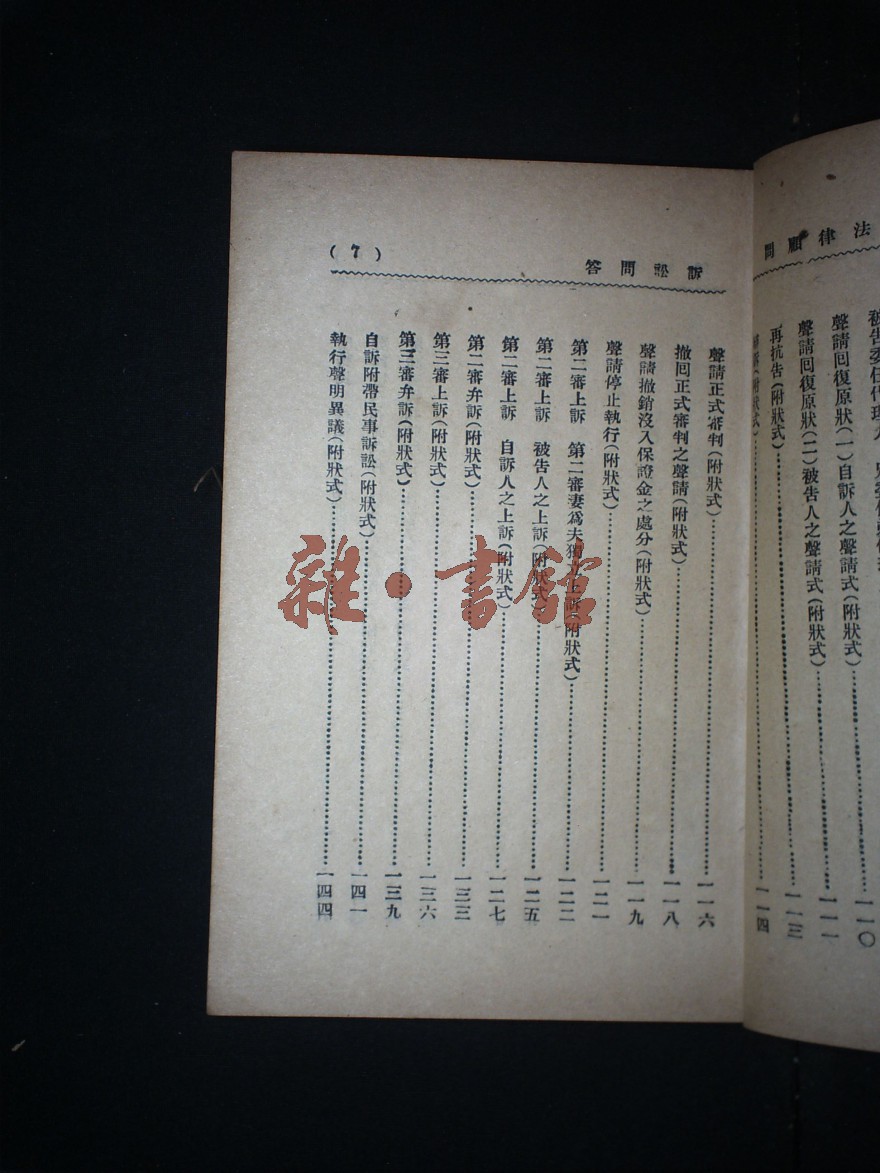 法律顧問
被告委任代理人
聲請回復原狀(一)自訴人之聲請式(附狀式)……一一〇
聲請回復原狀(二)被告人之聲請式(附狀式)……一一一
再抗告(附狀式)……一一三
(附狀式)……一一四
訴訟問答
(7)
聲請正式審判(附狀式)……一一六
撤回正式審判之聲請(附狀式)……一一八
聲請撤銷沒入保證金之處分(附狀式)……一一九
聲請停止執行(附狀式)……一二一
第二審上訴 第二審妻爲夫獨立上訴(附狀式)……一二二
第二審上訴 被告人之上訴(附狀式)……一二五
第二審上訴 自訴人之上訴(附狀式)……一二七
第二審弁訴(附狀式)……一三三
第三審上訴(附狀式)……一三六
第三審弁訴(附狀式)……一三九
自訴附帶民事訴訟(附狀式)……一四一
執行聲明異議(附狀式)……一四四
雜·書館